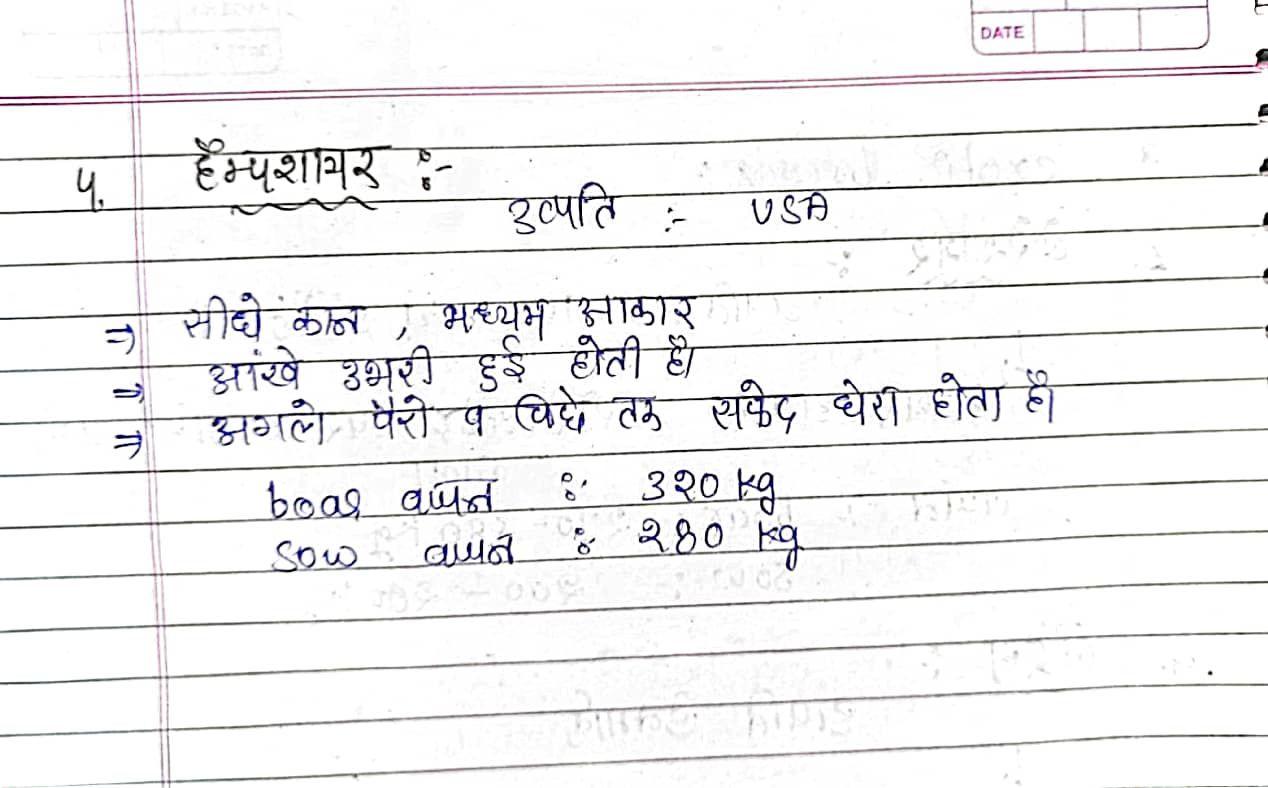 DATE
५. हैम्पशायर :-
उत्पति :- USA
⇒ सीधे कान , मध्यम आकार
⇒ आंखे उभरी हुई होती है।
⇒ अगले पैरो व पिछे तक सफेद घेरा होता है।
boar वजन : 320 kg
Sow वजन : 280 kg